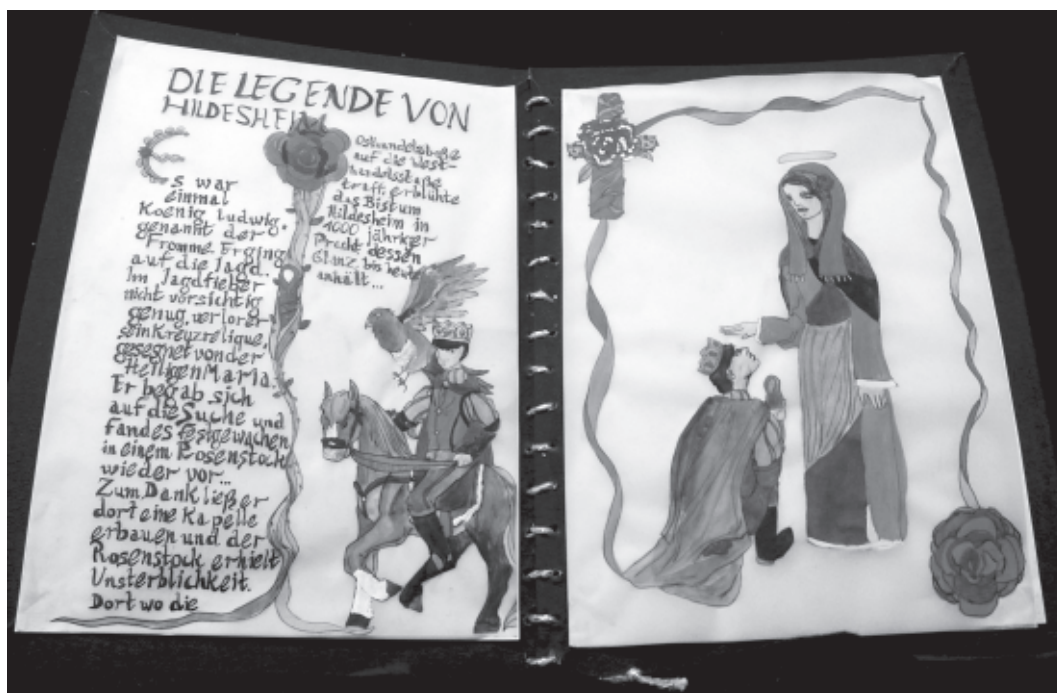 DIE LEGENDE VON
HILDESHEIM
Es war
einmal
Koenig Ludwig,
genannt der
Fromme Er ging
auf die Jagd.
Im Jagdfieber
nicht vorsichtig
genug, verlor er
sein Kreuzrelique,
gesegnet von der
Heiligen Maria.
Er begab sich
auf die Suche und
fand es festgewachen
in einem Rosenstock
wieder vor...
Zum Dank ließ er
dort eine Kapelle
erbauen und der
Rosenstock erhielt
Unsterblichkeit.
Dort wo die
auf die West-
traff, erblühte
das Bistum
Hildesheim in
1000 jähriger
Pracht dessen
Glanz bis heute
anhält...